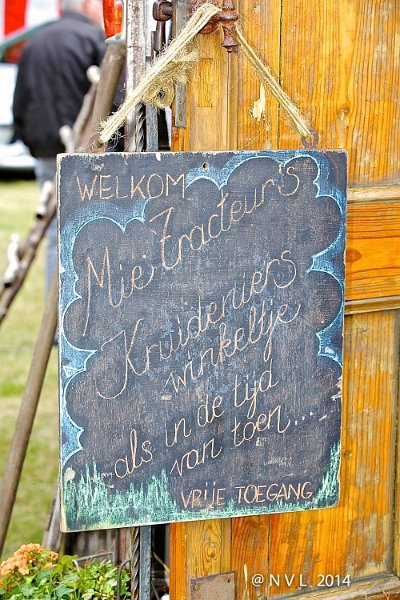 WELKOM
Mie Tracteur's
Kruideniers
winkeltje
als in de tijd
van toen...
VRIJE TOEGANG
@ N V L 2014